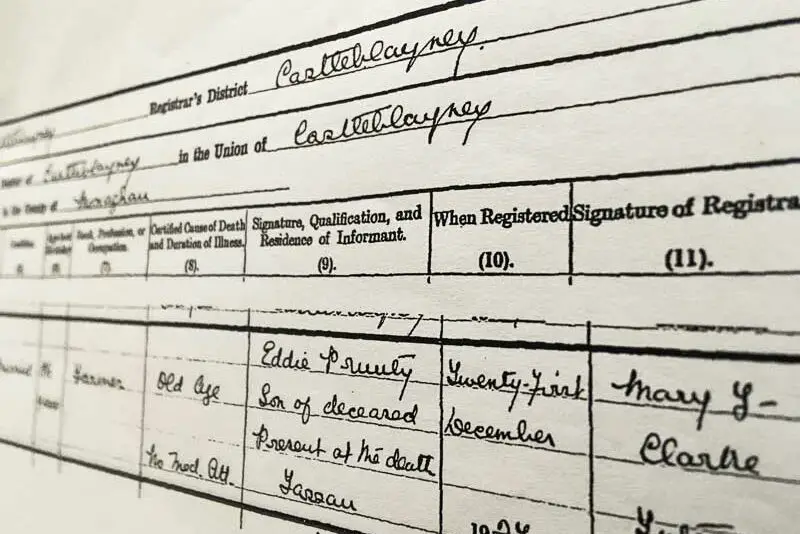 Registrar's District Castleblayney.
in the Union of Castleblayney
Castleblayney
in the County of Monaghan
Condition
Age last Birthday
Rank, Profession, or Occupation.
(7).
Certified Cause of Death and Duration of Illness.
(8).
Signature, Qualification, and Residence of Informant.
(9).
When Registered
(10).
Signature of Registra
(11).
Farmer
Old Age
No Med. Att.
Eddie Prunty
Son of deceased
Present at the death
Tassan
Twenty-First
December
Mary J-
Clarke